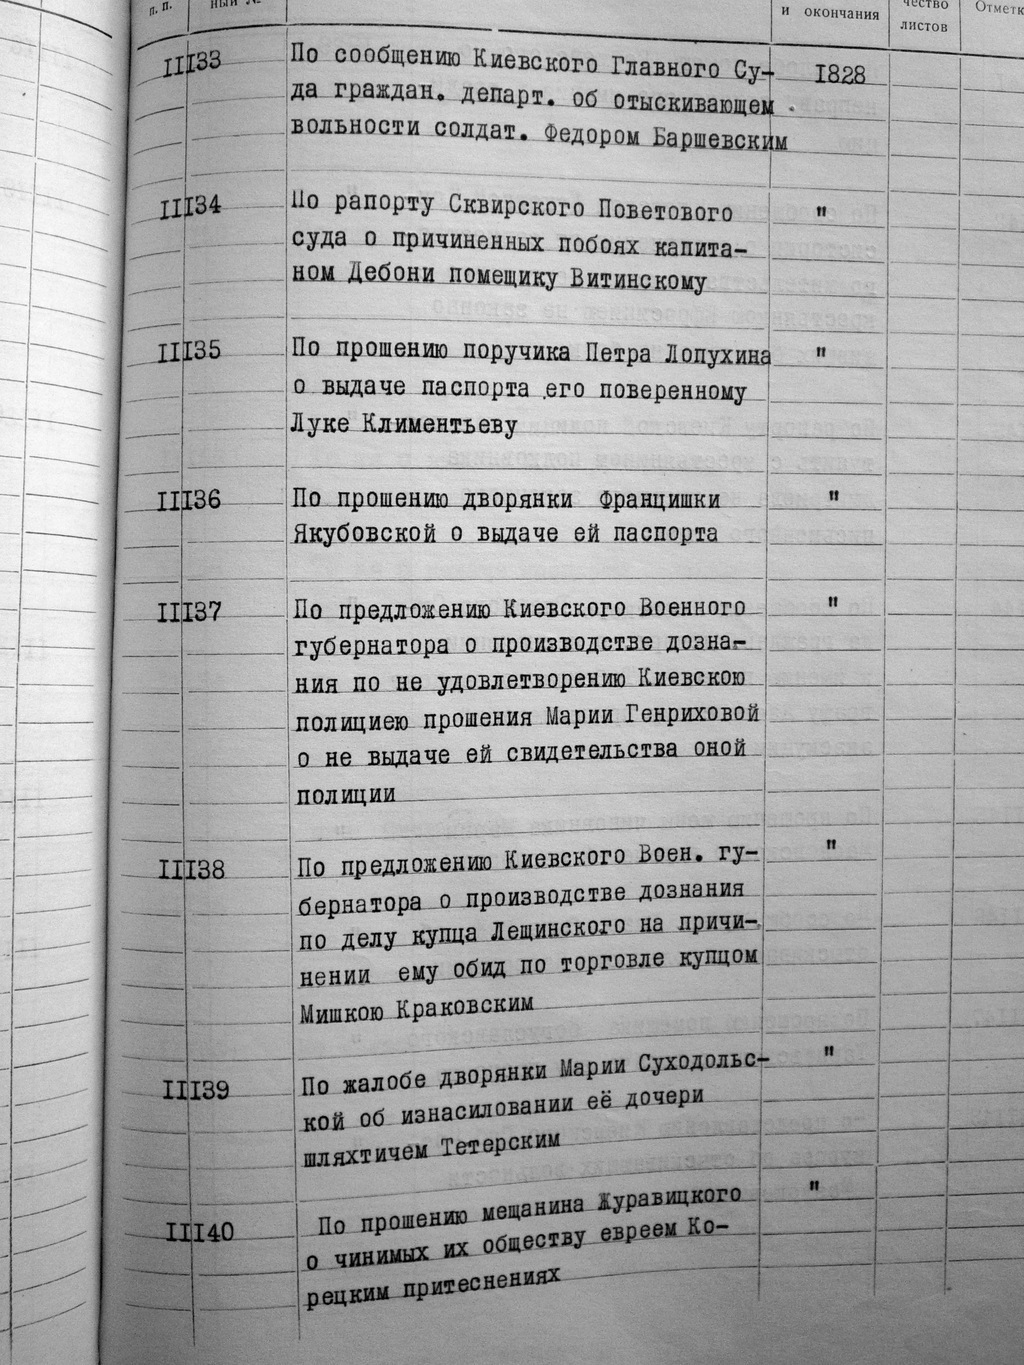 п. п.
ный №
и окончания
чество
листов
Отметк
III33 По сообщению Киевского Главного Су- 1828
да граждан. департ. об отыскивающем
вольности солдат. Федором Баршевским
III34 По рапорту Сквирского Поветового "
суда о причиненных побоях капита-
ном Дебони помещику Витинскому
III35 По прошению поручика Петра Лопухина "
о выдаче паспорта его поверенному
Луке Климентьеву
III36 По прошению дворянки Францишки "
Якубовской о выдаче ей паспорта
III37 По предложению Киевского Военного "
губернатора о производстве дозна-
ния по не удовлетворению Киевскою
полициею прошения Марии Генриховой
о не выдаче ей свидетельства оной
полиции
III38 По предложению Киевского Воен. гу- "
бернатора о производстве дознания
по делу купца Лещинского на причи-
нении ему обид по торговле купцом
Мишкою Краковским
III39 По жалобе дворянки Марии Суходольс- "
кой об изнасиловании её дочери
шляхтичем Тетерским
III40 По прошению мещанина Журавицкого "
о чинимых их обществу евреем Ко-
рецким притеснениях